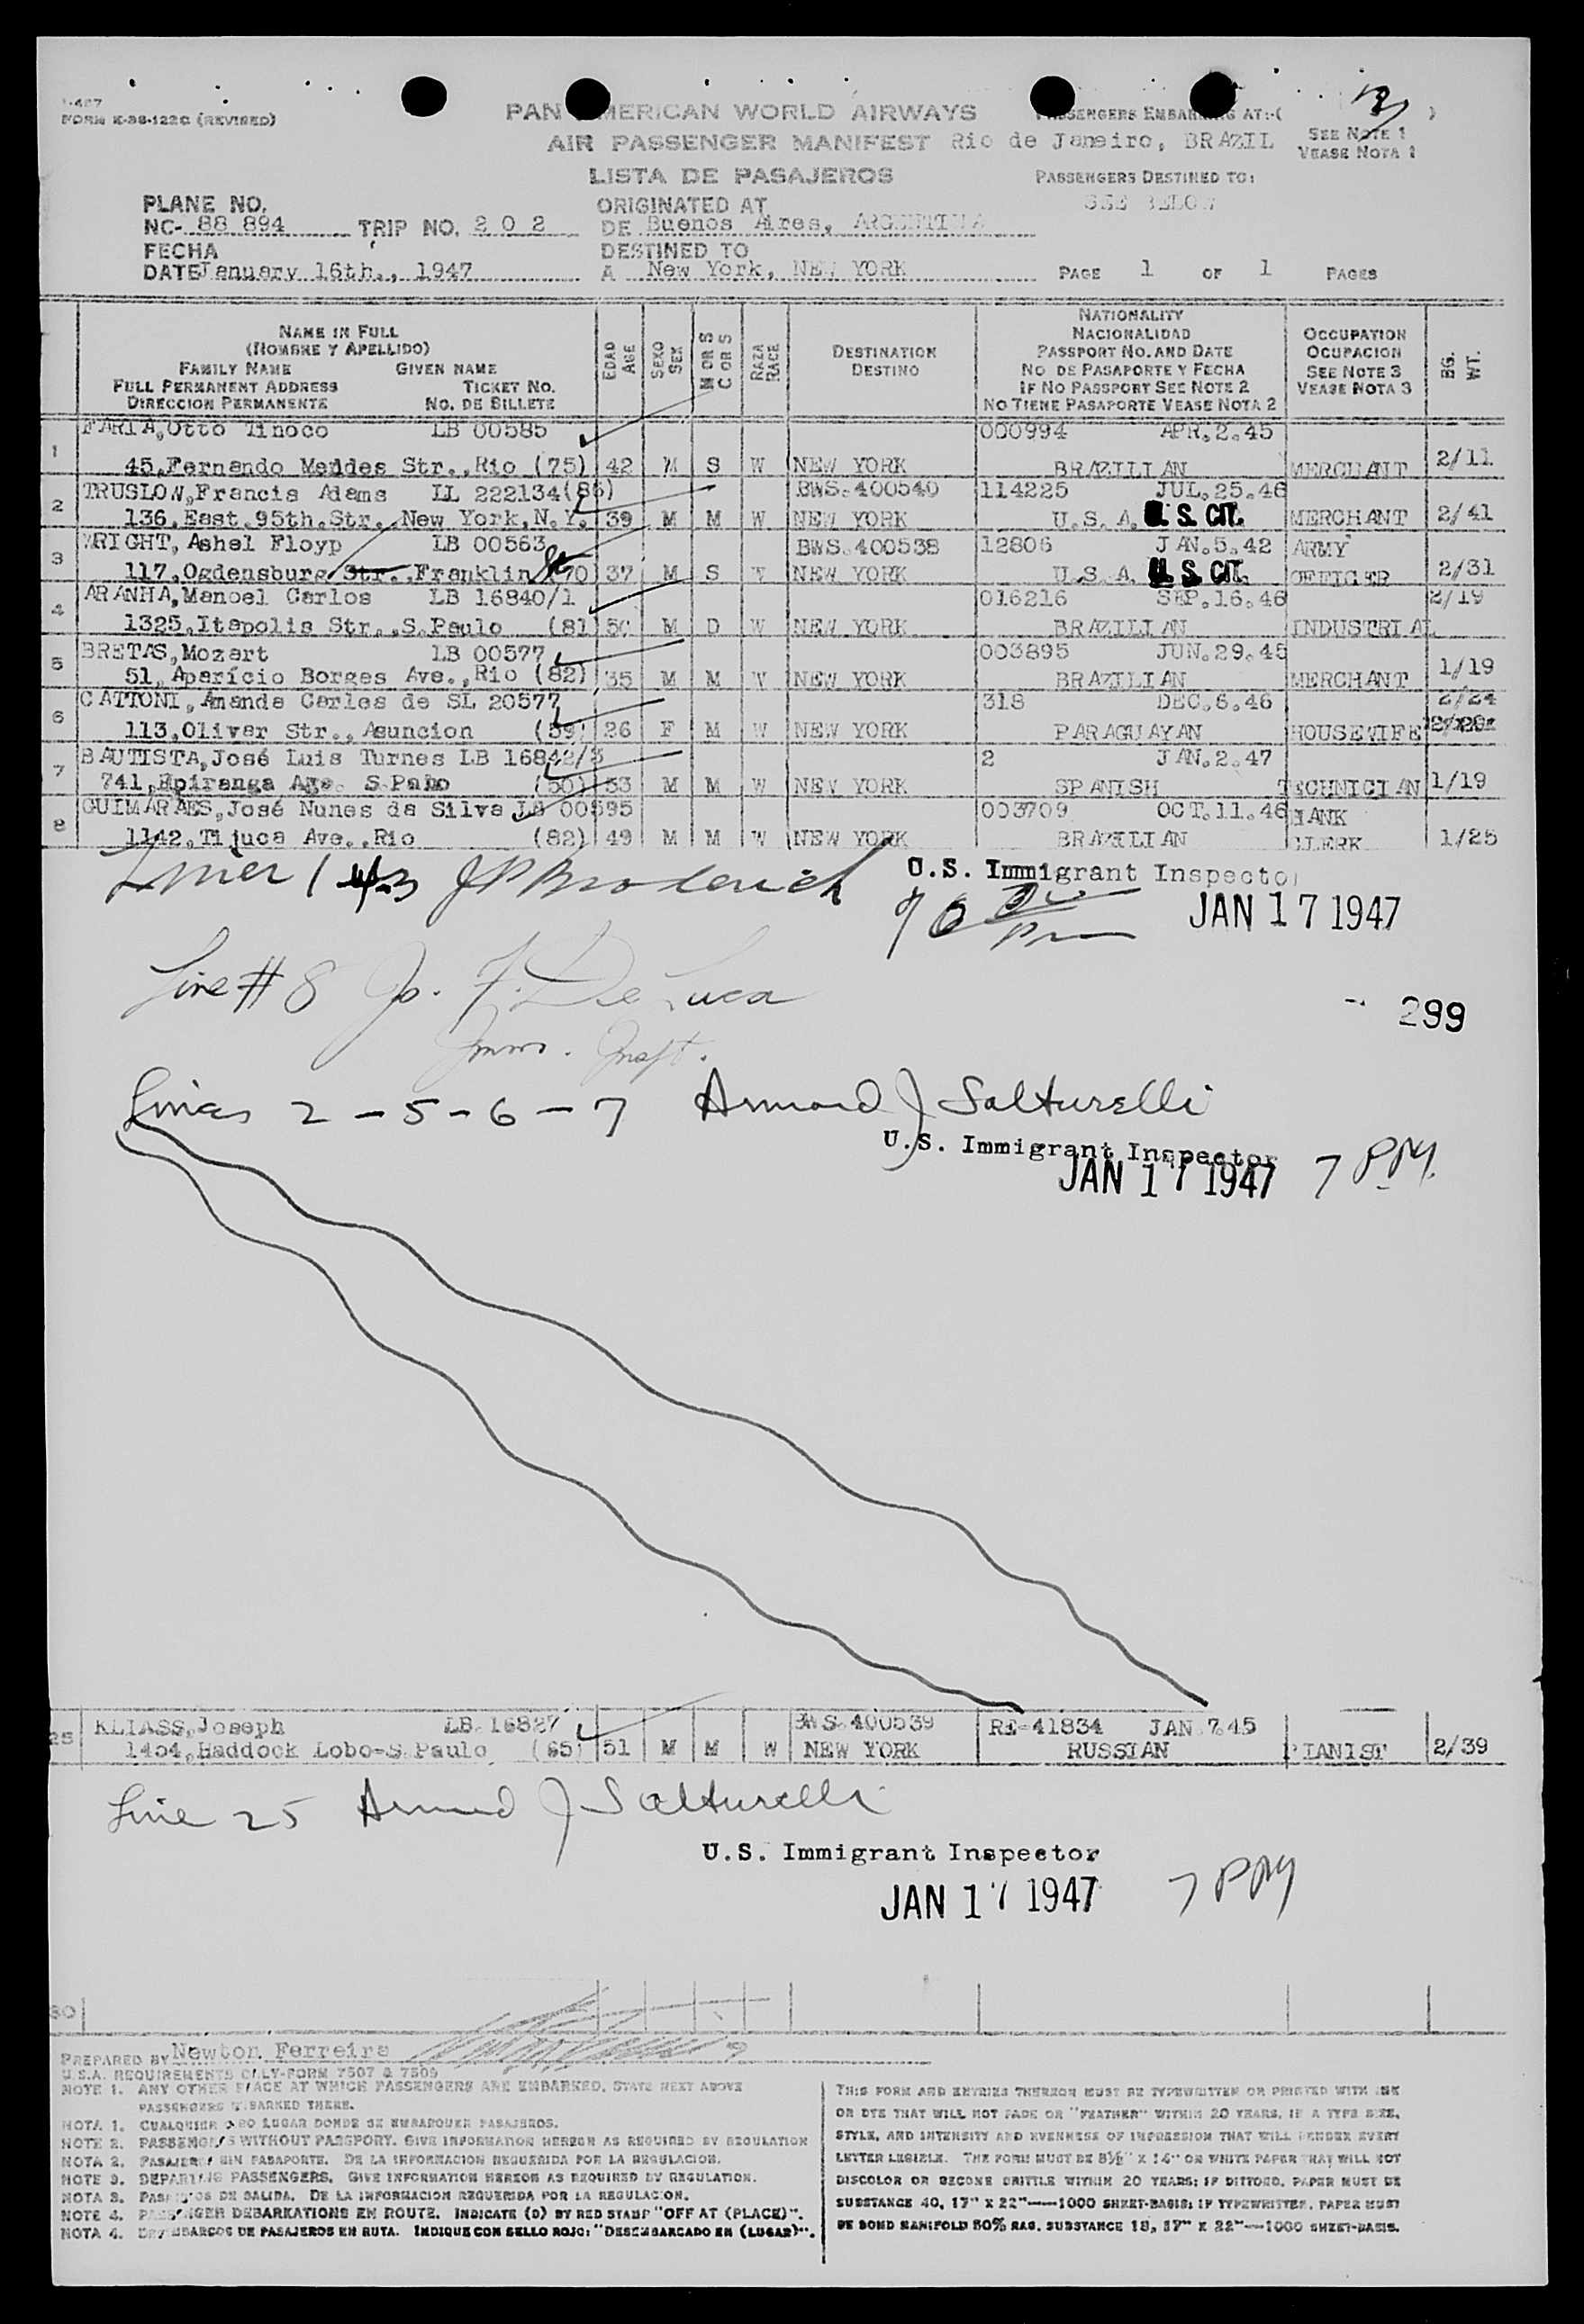 I-487
FORM K-98-122C (REVISED)
PAN AMERICAN WORLD AIRWAYS
AIR PASSENGER MANIFEST
LISTA DE PASAJEROS
PASSENGERS EMBARKING AT:-( )
Rio de Janeiro, BRAZIL
SEE NOTE 1
VEASE NOTA 1
PASSENGERS DESTINED TO:
SEE BELOW
PLANE NO.
NC- 88 894 TRIP NO. 2 0 2
ORIGINATED AT
DE Buenos Aires, ARGENTINA
FECHA
DATE January 16th., 1947
DESTINED TO
A New York, NEW YORK
PAGE 1 OF 1 PAGES
NAME IN FULL
(NOMBRE Y APELLIDO)
FAMILY NAME GIVEN NAME
FULL PERMANENT ADDRESS TICKET NO.
DIRECCION PERMANENTE NO. DE BILLETE
EDAD
AGE
SEXO
SEX
M OR S
C OR S
RAZA
RACE
DESTINATION
DESTINO
NATIONALITY
NACIONALIDAD
PASSPORT NO. AND DATE
NO DE PASAPORTE Y FECHA
IF NO PASSPORT SEE NOTE 2
NO TIENE PASAPORTE VEASE NOTA 2
OCCUPATION
OCUPACION
SEE NOTE 3
VEASE NOTA 3
BG.
WT.
1 FARIA,Otto Tinoco LB 00585 000994 APR.2.45
45,Fernando Mendes Str.,Rio (75) 42 M S W NEW YORK BRAZILIAN MERCHANT 2/11
2 TRUSLOW,Francis Adams LL 222134(86) BWS.400540 114225 JUL.25.46
136,East.95th.Str.,New York,N.Y. 39 M M W NEW YORK U.S.A. U.S. CIT. MERCHANT 2/41
3 WRIGHT,Ashel Floyp LB 00563 BWS.400538 12806 JAN.5.42 ARMY
117,Ogdensburg Str.,Franklin (70 37 M S W NEW YORK U.S.A. U.S. CIT. OFFICER 2/31
4 ARANHA,Manoel Carlos LB 16840/1 016216 SEP.16.46 2/19
1325,Itapolis Str.,S.Paulo (81) 50 M D W NEW YORK BRAZILIAN INDUSTRIAL
5 BRETAS,Mozart LB 00577 003895 JUN.29.45
51,Aparício Borges Ave.,Rio (82) 35 M M W NEW YORK BRAZILIAN MERCHANT 1/19
6 CATTONI,Amanda Carles de SL 20577 318 DEC.6.46 2/24
113,Oliver Str.,Asuncion (59) 26 F M W NEW YORK PARAGUAYAN HOUSEWIFE
7 BAUTISTA,José Luis Turnes LB 16842/3 2 JAN.2.47
741,Epiranga Age. S.Paulo (50) 53 M M W NEW YORK SPANISH TECHNICIAN 1/19
8 GUIMARAES,José Nunes da Silva LB 00595 003709 OCT.11.46 BANK
1142,Tijuca Ave.,Rio (82) 49 M M W NEW YORK BRAZILIAN CLERK 1/25
U.S. Immigrant Inspector
JAN 17 1947
Line # 8 Jo. F. De Luca
Imm. Inspt.
299
Lines 2 - 5 - 6 - 7 Armand J Salturelli
U.S. Immigrant Inspector
JAN 17 1947 7 PM.
25 KLIASS,Joseph LB 16827 BWS.400539 RE-41834 JAN 7.45
1454,Haddock Lobo-S.Paulo (65) 51 M M W NEW YORK RUSSIAN PIANIST 2/39
Line 25 Armand J Salturelli
U.S. Immigrant Inspector
JAN 17 1947 7 PM
30
PREPARED BY Newton Ferreira
U.S.A. REQUIREMENTS ONLY-FORM 7507 & 7509
NOTE 1. ANY OTHER PLACE AT WHICH PASSENGERS ARE EMBARKED, STATE NEXT ABOVE
PASSENGERS EMBARKED THERE.
NOTA 1. CUALQUIER OTRO LUGAR DONDE SE EMBARQUEN PASAJEROS.
NOTE 2. PASSENGERS WITHOUT PASSPORT. GIVE INFORMATION HEREON AS REQUIRED BY REGULATION
NOTA 2. PASAJEROS SIN PASAPORTE. DE LA INFORMACION REQUERIDA POR LA REGULACION.
NOTE 3. DEPARTING PASSENGERS. GIVE INFORMATION HEREON AS REQUIRED BY REGULATION.
NOTA 3. PASAJEROS DE SALIDA. DE LA INFORMACION REQUERIDA POR LA REGULACION.
NOTE 4. PASSENGER DEBARKATIONS EN ROUTE. INDICATE (D) BY RED STAMP "OFF AT (PLACE)".
NOTA 4. DESEMBARCOS DE PASAJEROS EN RUTA. INDIQUE CON SELLO ROJO: "DESEMBARCADO EN (LUGAR)".
THIS FORM AND ENTRIES THEREON MUST BE TYPEWRITTEN OR PRINTED WITH INK
OR DYE THAT WILL NOT FADE OR "FEATHER" WITHIN 20 YEARS, IN A TYPE SIZE,
STYLE, AND INTENSITY AND EVENNESS OF IMPRESSION THAT WILL RENDER EVERY
LETTER LEGIBLE. THE FORM MUST BE 8½" X 14" ON WHITE PAPER THAT WILL NOT
DISCOLOR OR BECOME BRITTLE WITHIN 20 YEARS; IF DITTOED, PAPER MUST BE
SUBSTANCE 40, 17" X 22"—1000 SHEET-BASIS; IF TYPEWRITTEN, PAPER MUST
BE BOND MANIFOLD 50% RAG, SUBSTANCE 18, 17" X 22"—1000 SHEET-BASIS.